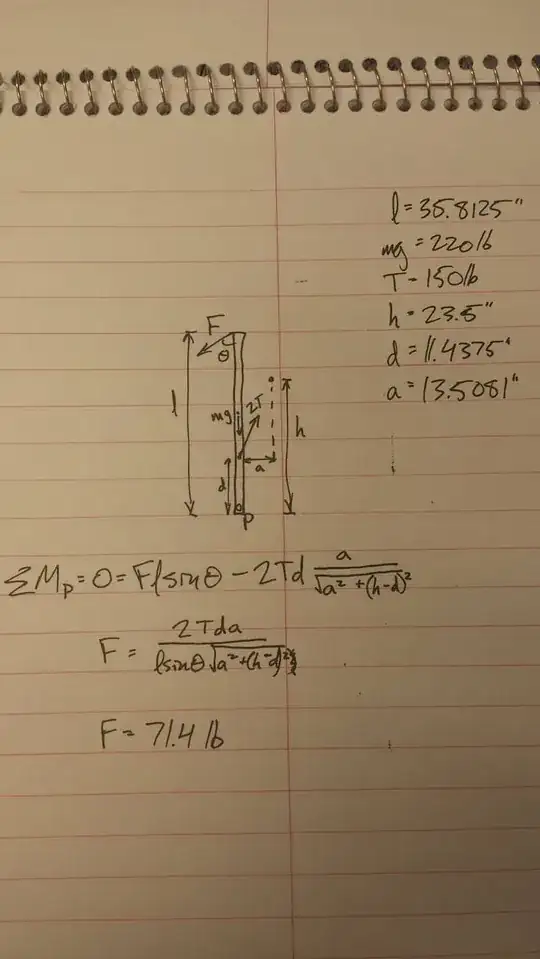 l = 35.8125"
mg = 220 lb
T = 150 lb
h = 23.5"
d = 11.4375"
a = 13.5081"
F
θ
l
mg
2T
h
a
d
P
ΣMp = 0 = Flsinθ - 2Td a/√(a² + (h-d)²)
F = 2Tda/(lsinθ√(a² + (h-d)²))
F = 71.4 lb